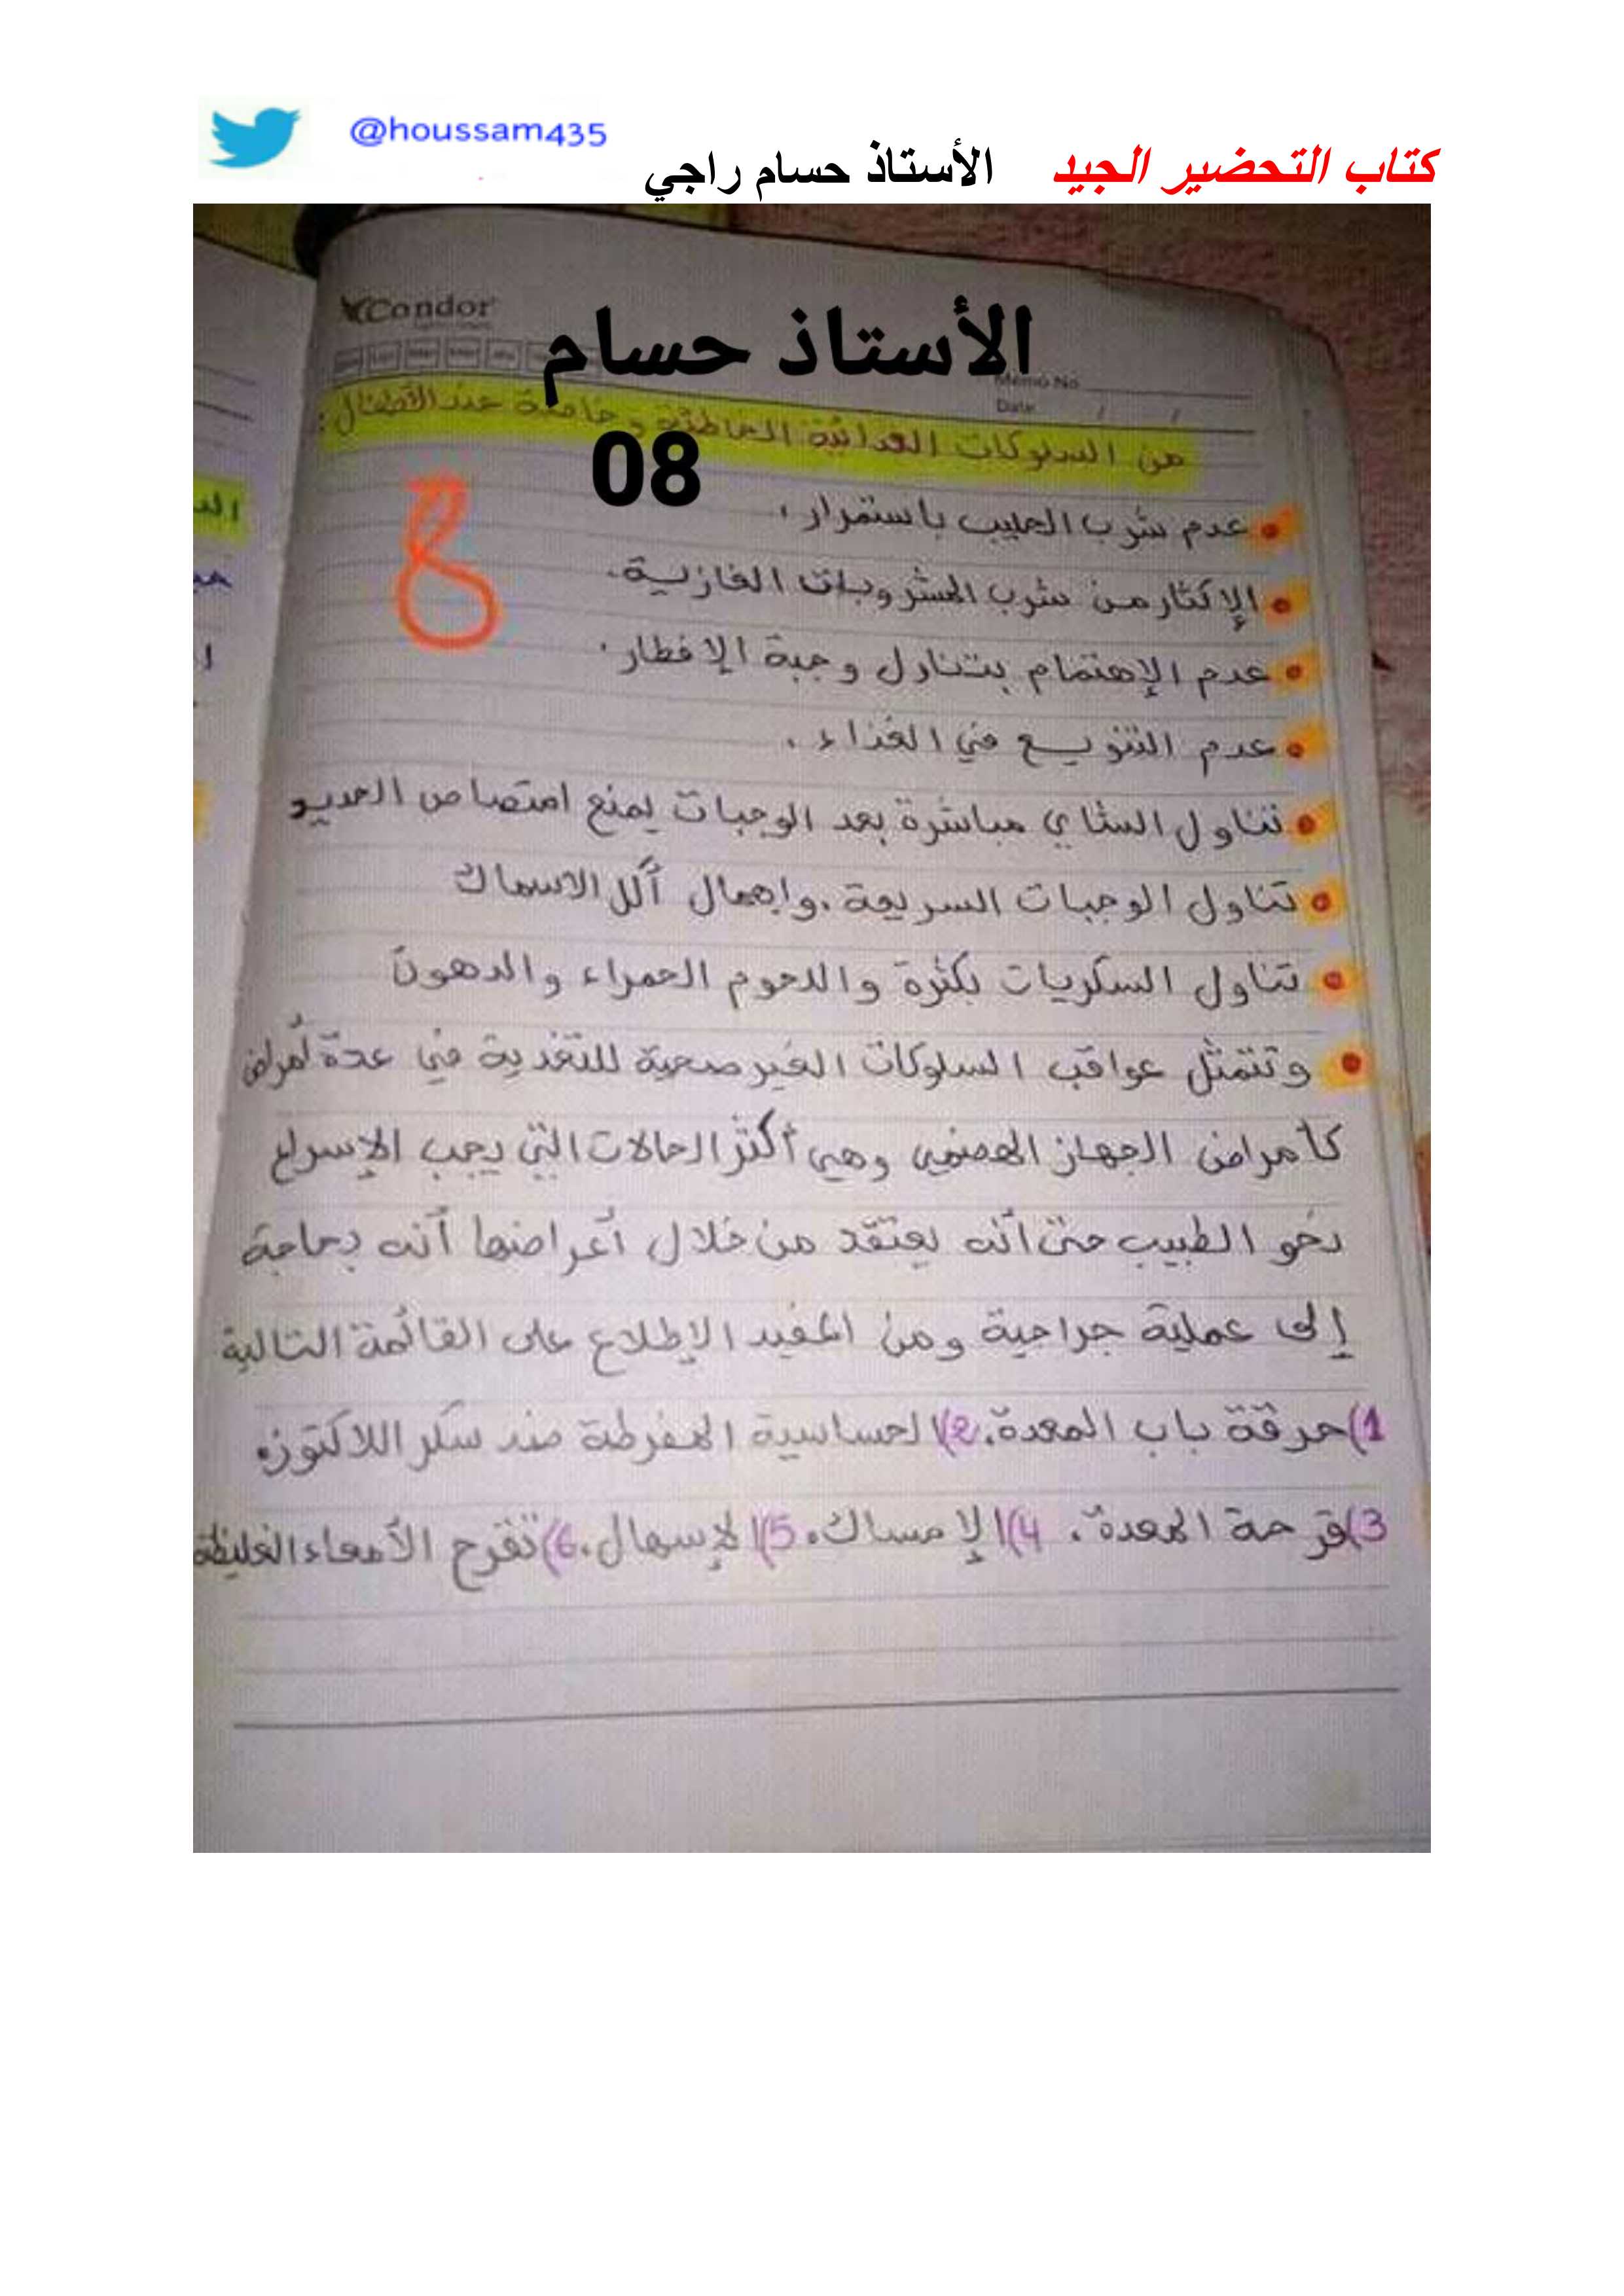 @houssam435
كتاب التحضير الجيد الأستاذ حسام راجي
Condor
الأستاذ حسام
Memo No
Date / /
من السلوكات الغدائية الخاطئة وخاصة عند الأطفال :
08
8
• عدم شرب الحليب باستمرار .
• الإكثار من شرب المشروبات الغازية.
• عدم الإهتمام بتناول وجبة الإفطار .
• عدم التنويع في الغذاء .
• تناول الشاي مباشرة بعد الوجبات يمنع امتصاص الحديد
• تناول الوجبات السريعة . وإهمال أكل الاسماك
• تناول السكريات بكثرة واللحوم الحمراء والدهون
• وتتمثل عواقب السلوكات الغير صحية للتغذية في عدة أمراض
كأمراض الجهاز الهضمي وهي أكثر الحالات التي يجب الإسراع
نحو الطبيب حتى أنه يعتقد من خلال أعراضها أنه بحاجة
إلى عملية جراحية ومن المفيد الإطلاع على القائمة التالية
1) حرقة باب المعدة. 2) الحساسية المفرطة ضد سكر اللاكتوز.
3) قرحة المعدة. 4) الإمساك. 5) الإسهال. 6) تقرح الأمعاء الغليظة